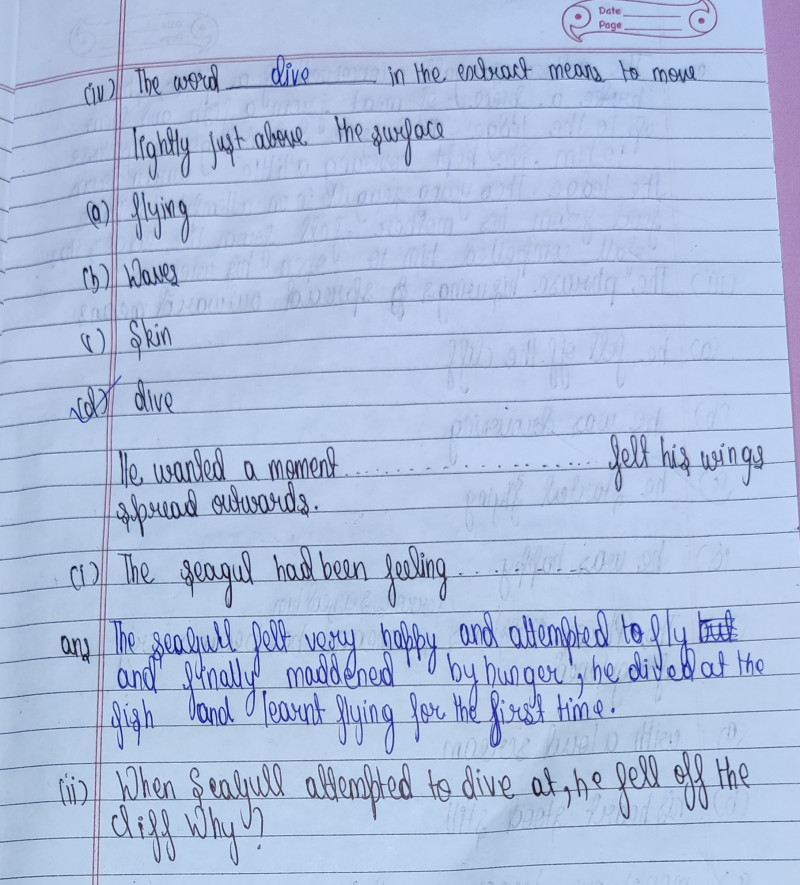 Date
Page
(iv) The word dive in the extract means to move
lightly just above the surface
(a) flying
(b) Waves
(c) Skin
(d) dive
He wanted a moment ................... felt his wings
spread outwards.
(i) The seagul had been feeling .........
ans The seagull felt very happy and attempted to fly but
and finally maddened by hunger, he dived at the
fish and learnt flying for the first time.
(ii) When Seagull attempted to dive at, he fell off the
cliff Why?